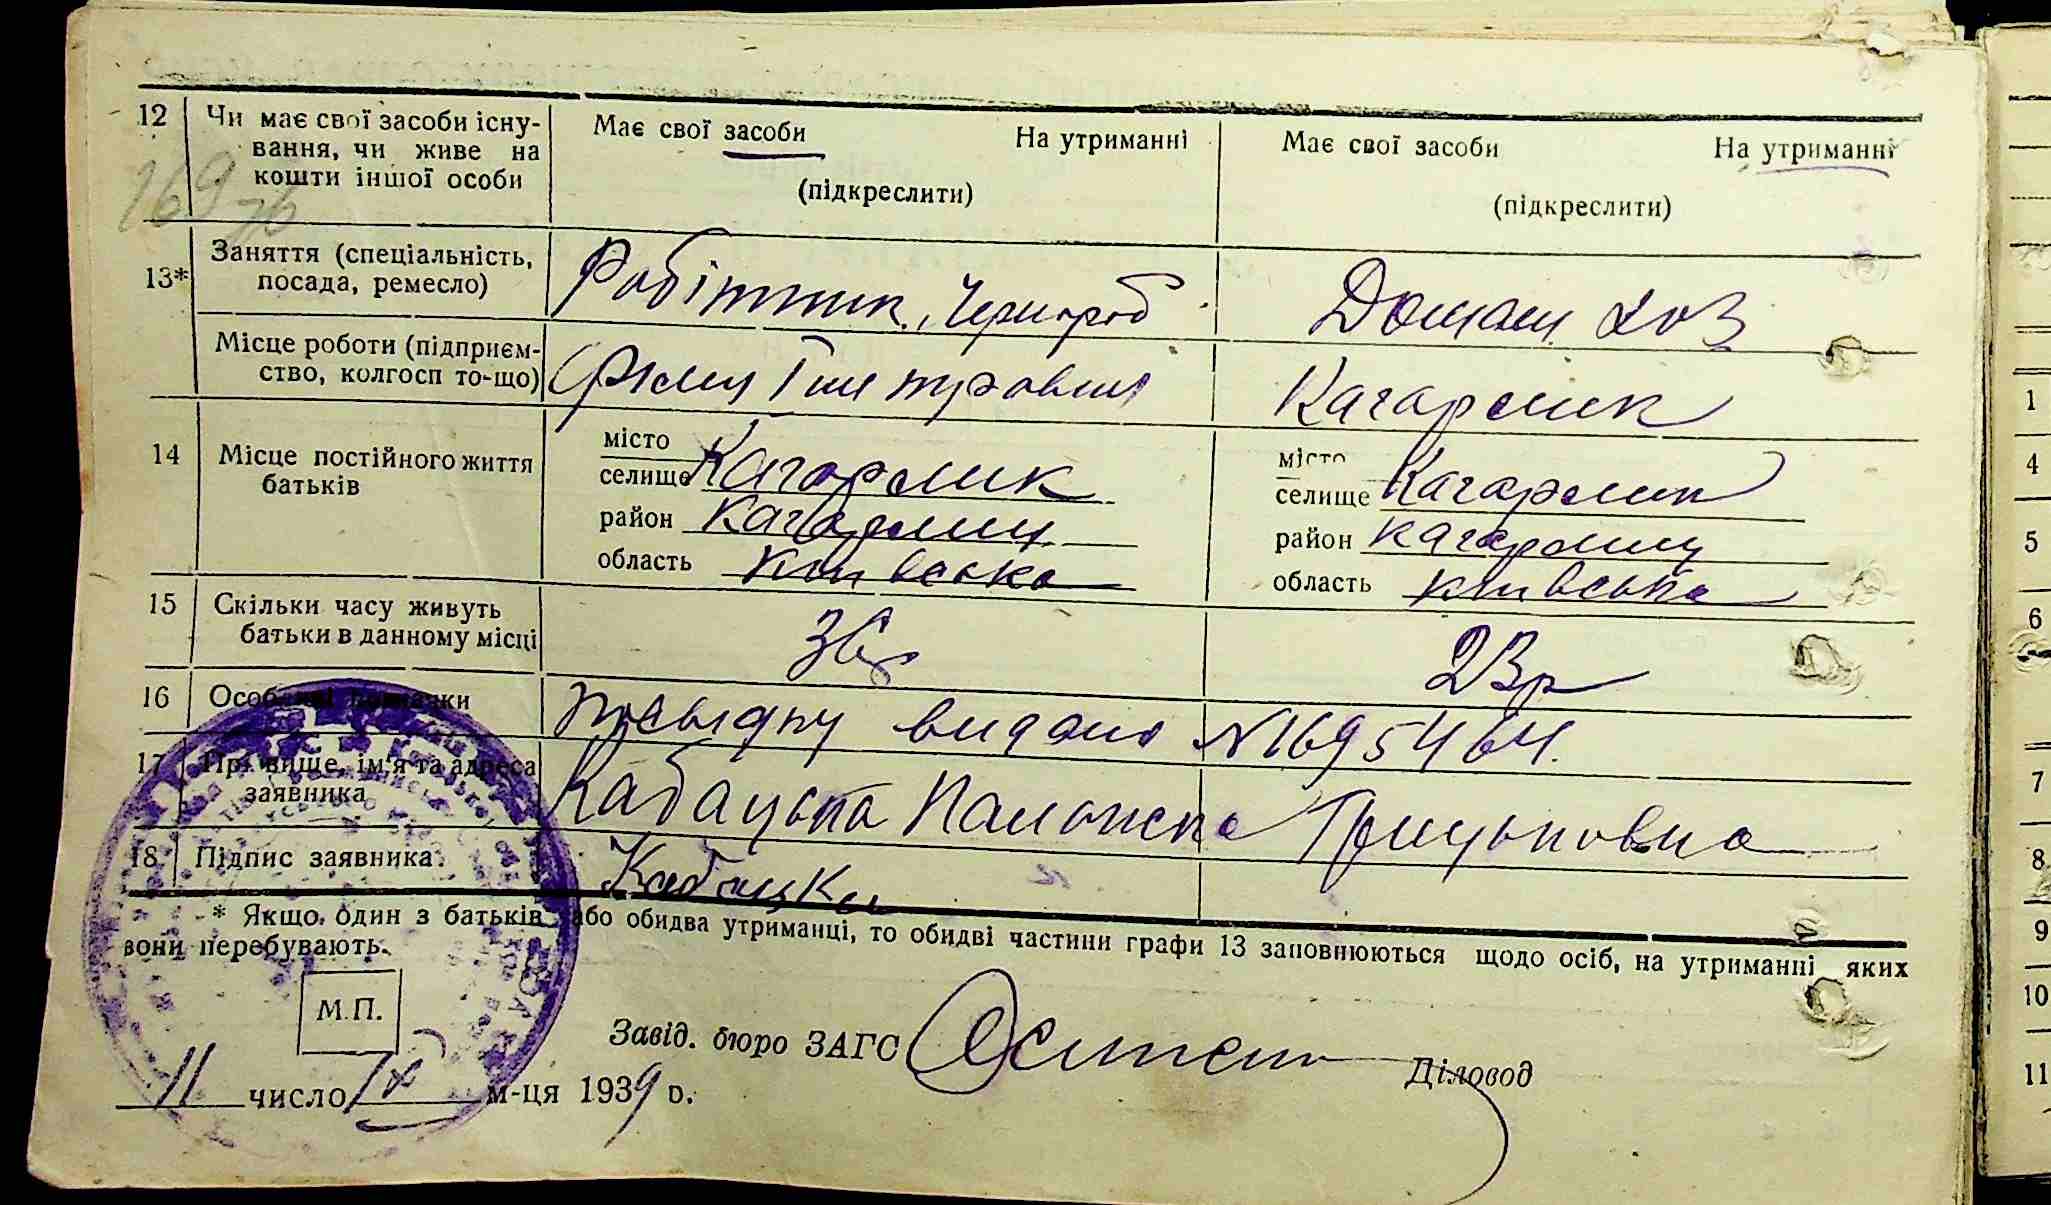 12 Чи має свої засоби існу- Має свої засоби На утриманні Має свої засоби На утриманні
вання, чи живе на
кошти іншої особи (підкреслити) (підкреслити)
169
13* Заняття (спеціальність, Робітник, Чернороб Домаш хоз
посада, ремесло)
Місце роботи (підприєм- Кагарлик
ство, колгосп то-що)
14 Місце постійного життя місто Кагарлик місто Кагарлик
батьків селище селище
район Кагарлиц район Кагарлиц
область Київська область Київська
15 Скільки часу живуть 36р 23р
батьки в данному місці
16 Особливі помітки Посвідку видано №1695464.
17 Прізвище, ім'я та адреса Кабацька Палажка Грицьковна
заявника
18 Підпис заявника Кабацка
* Якщо один з батьків або обидва утриманці, то обидві частини графи 13 заповнюються щодо осіб, на утриманні яких
вони перебувають.
М.П.
Завід. бюро ЗАГС Діловод
11 число IX м-ця 1939 р.
1
4
5
6
7
8
9
10
11